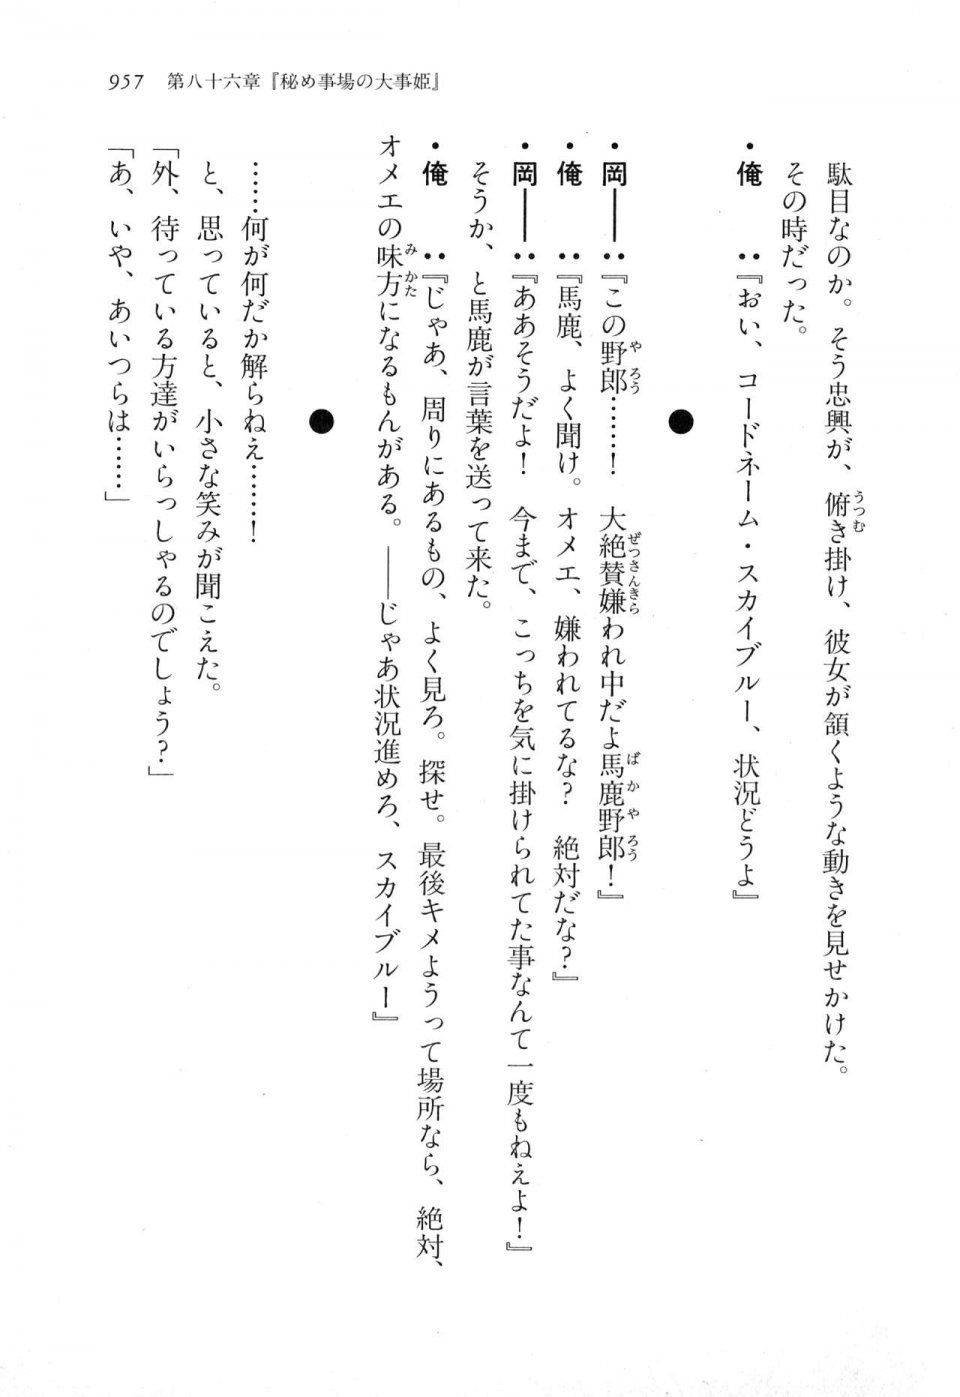 957　第八十六章『秘め事場の大事姫』
駄目なのか。そう忠興が、俯き掛け、彼女が頷くような動きを見せかけた。
その時だった。
・俺　　：『おい、コードネーム・スカイブルー、状況どうよ』
●
・岡――：『この野郎……！　大絶賛嫌われ中だよ馬鹿野郎！』
・俺　　：『馬鹿、よく聞け。オメエ、嫌われてるな？　絶対だな？』
・岡――：『ああそうだよ！　今まで、こっちを気に掛けられてた事なんて一度もねえよ！』
そうか、と馬鹿が言葉を送って来た。
・俺　　：『じゃあ、周りにあるもの、よく見ろ。探せ。最後キメようって場所なら、絶対、
オメエの味方になるもんがある。――じゃあ状況進めろ、スカイブルー』
●
……何が何だか解らねえ……！
と、思っていると、小さな笑みが聞こえた。
「外、待っている方達がいらっしゃるのでしょう？」
「あ、いや、あいつらは……」